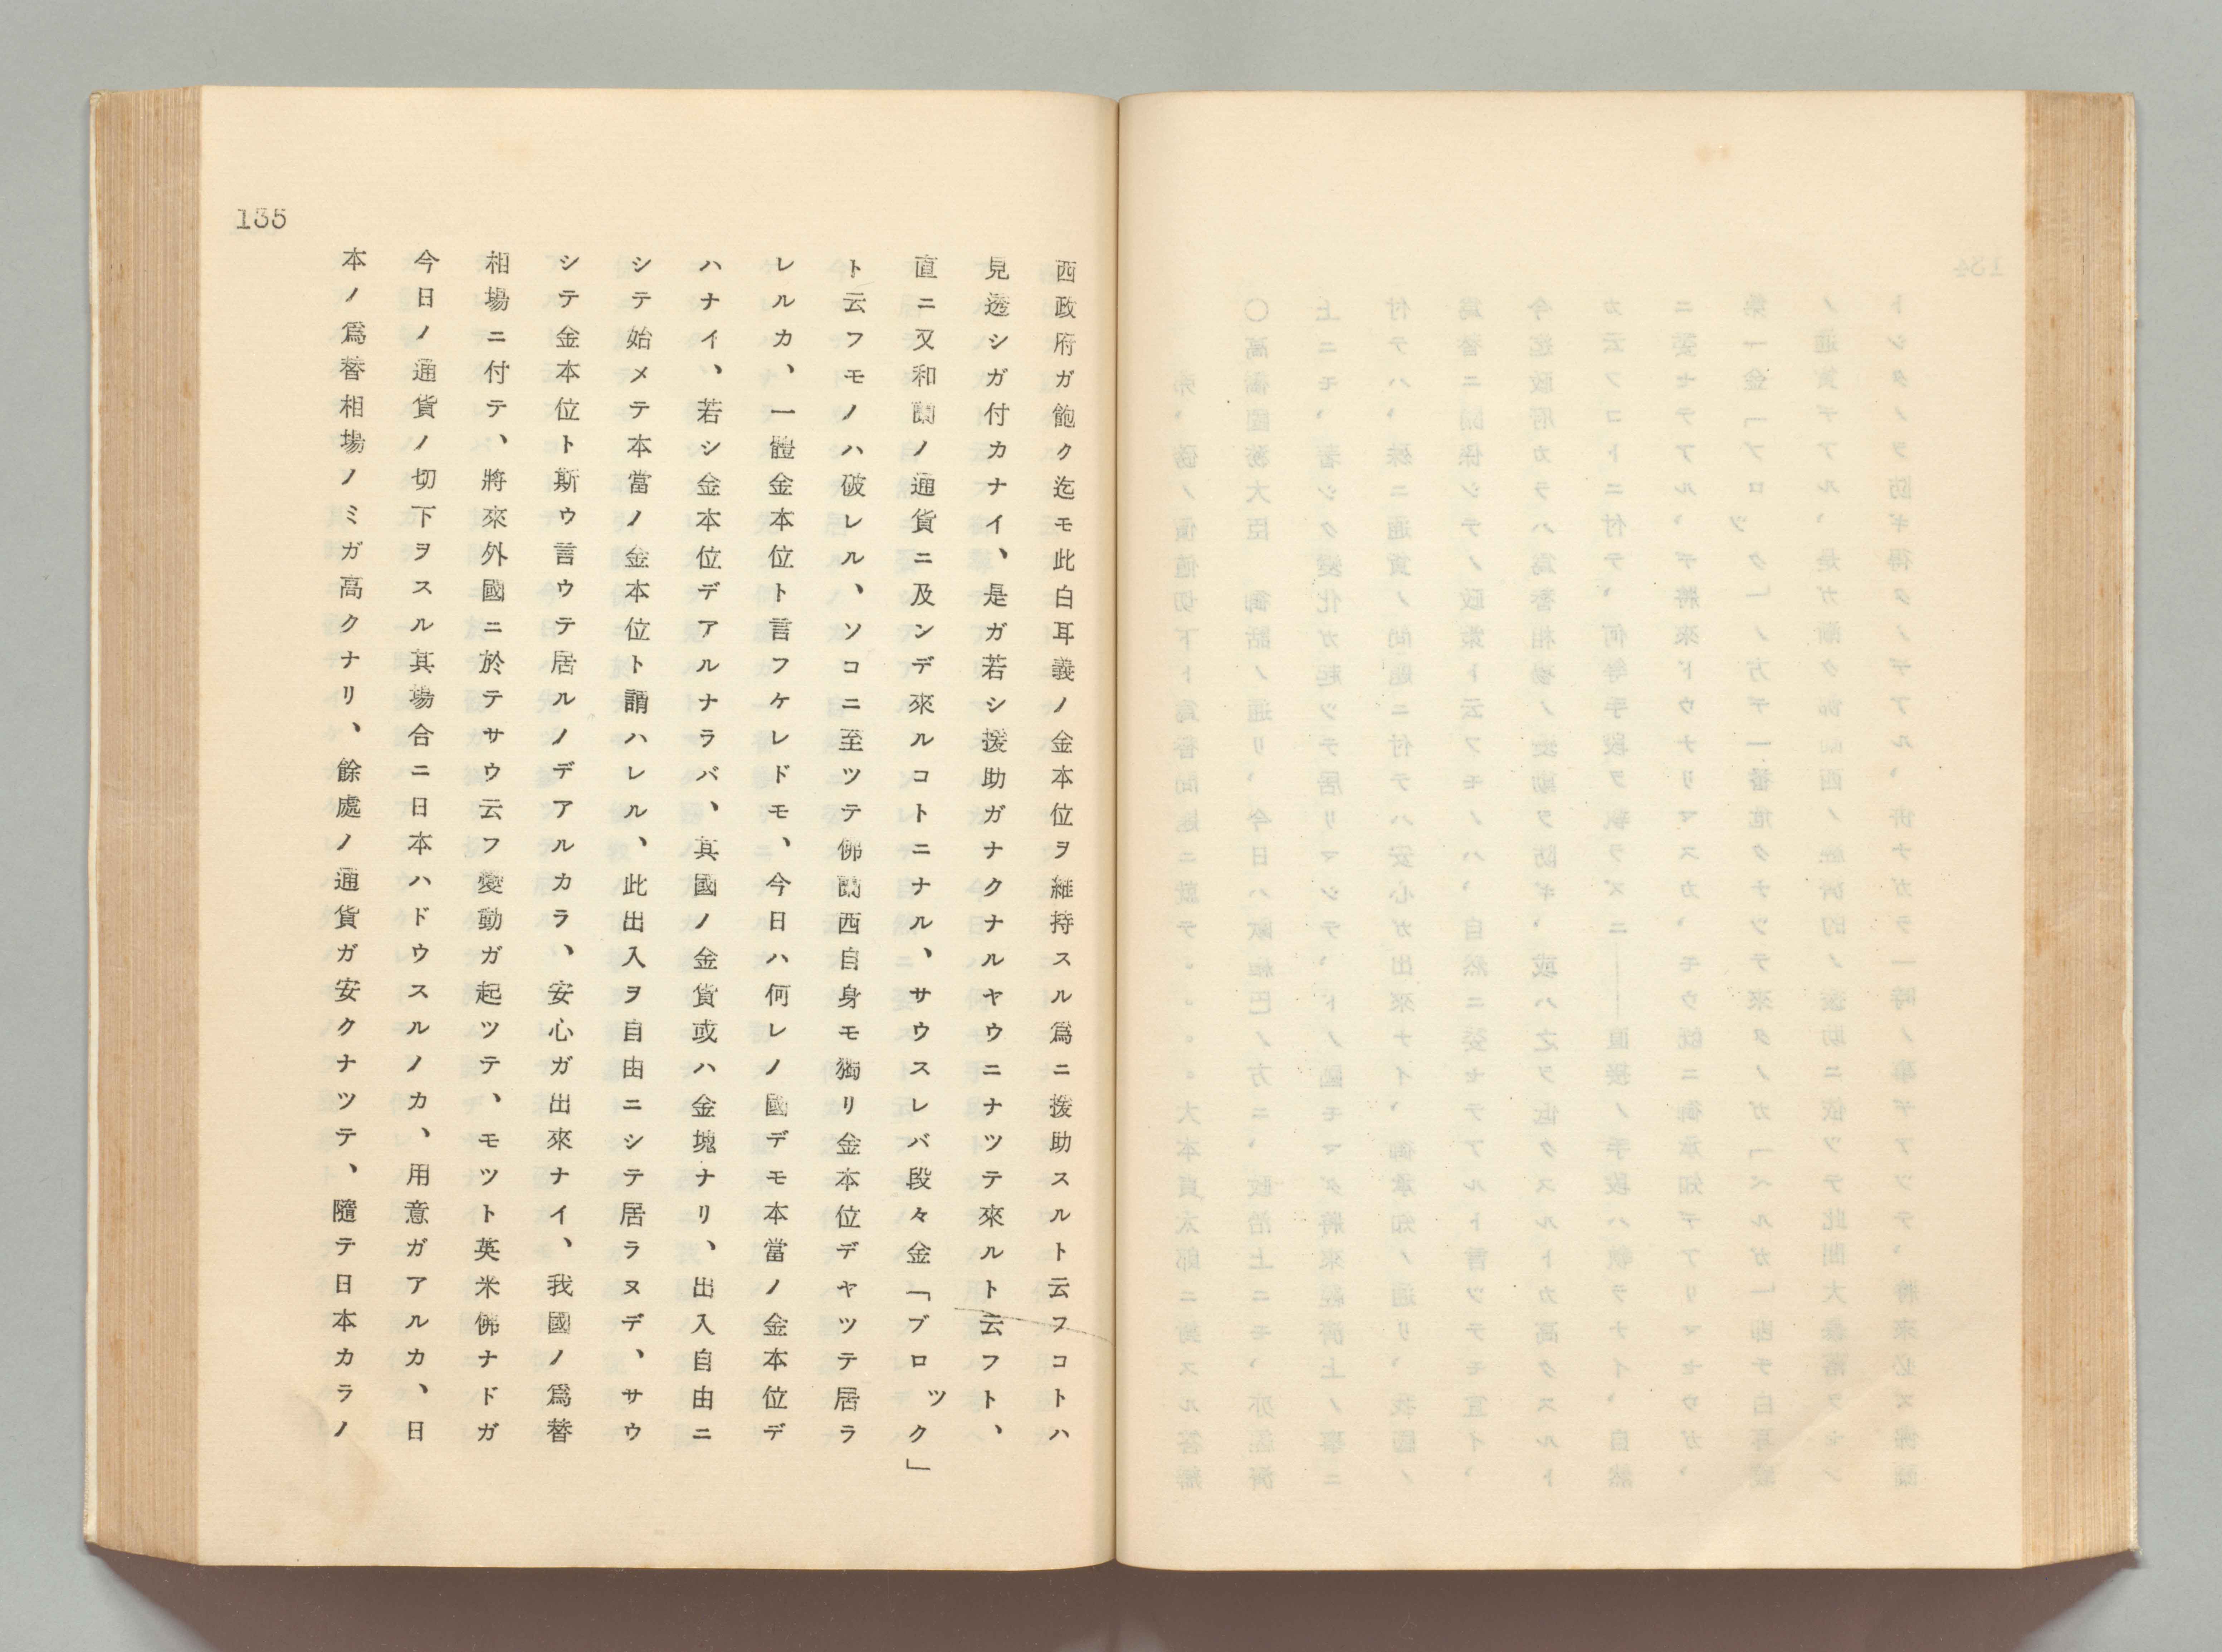 135
西政府ガ飽ク迄モ此白耳義ノ金本位ヲ維持スル爲ニ援助スルト云フコトハ
見透シガ付カナイ、是ガ若シ援助ガナクナルヤウニナツテ來ルト云フト、
直ニ又和蘭ノ通貨ニ及ンデ來ルコトニナル、サウスレバ段々金「ブロツク」
ト云フモノハ破レル、ソコニ至ツテ佛蘭西自身モ獨リ金本位デヤツテ居ラ
レルカ、一體金本位ト言フケレドモ、今日ハ何レノ國デモ本當ノ金本位デ
ハナイ、若シ金本位デアルナラバ、其國ノ金貨或ハ金塊ナリ、出入自由ニ
シテ始メテ本當ノ金本位ト謂ハレル、此出入ヲ自由ニシテ居ラヌデ、サウ
シテ金本位ト斯ウ言ウテ居ルノデアルカラ、安心ガ出來ナイ、我國ノ爲替
相場ニ付テ、將來外國ニ於テサウ云フ變動ガ起ツテ、モツト英米佛ナドガ
今日ノ通貨ノ切下ヲスル其場合ニ日本ハドウスルノカ、用意ガアルカ、日
本ノ爲替相場ノミガ高クナリ、餘處ノ通貨ガ安クナツテ、隨テ日本カラノ